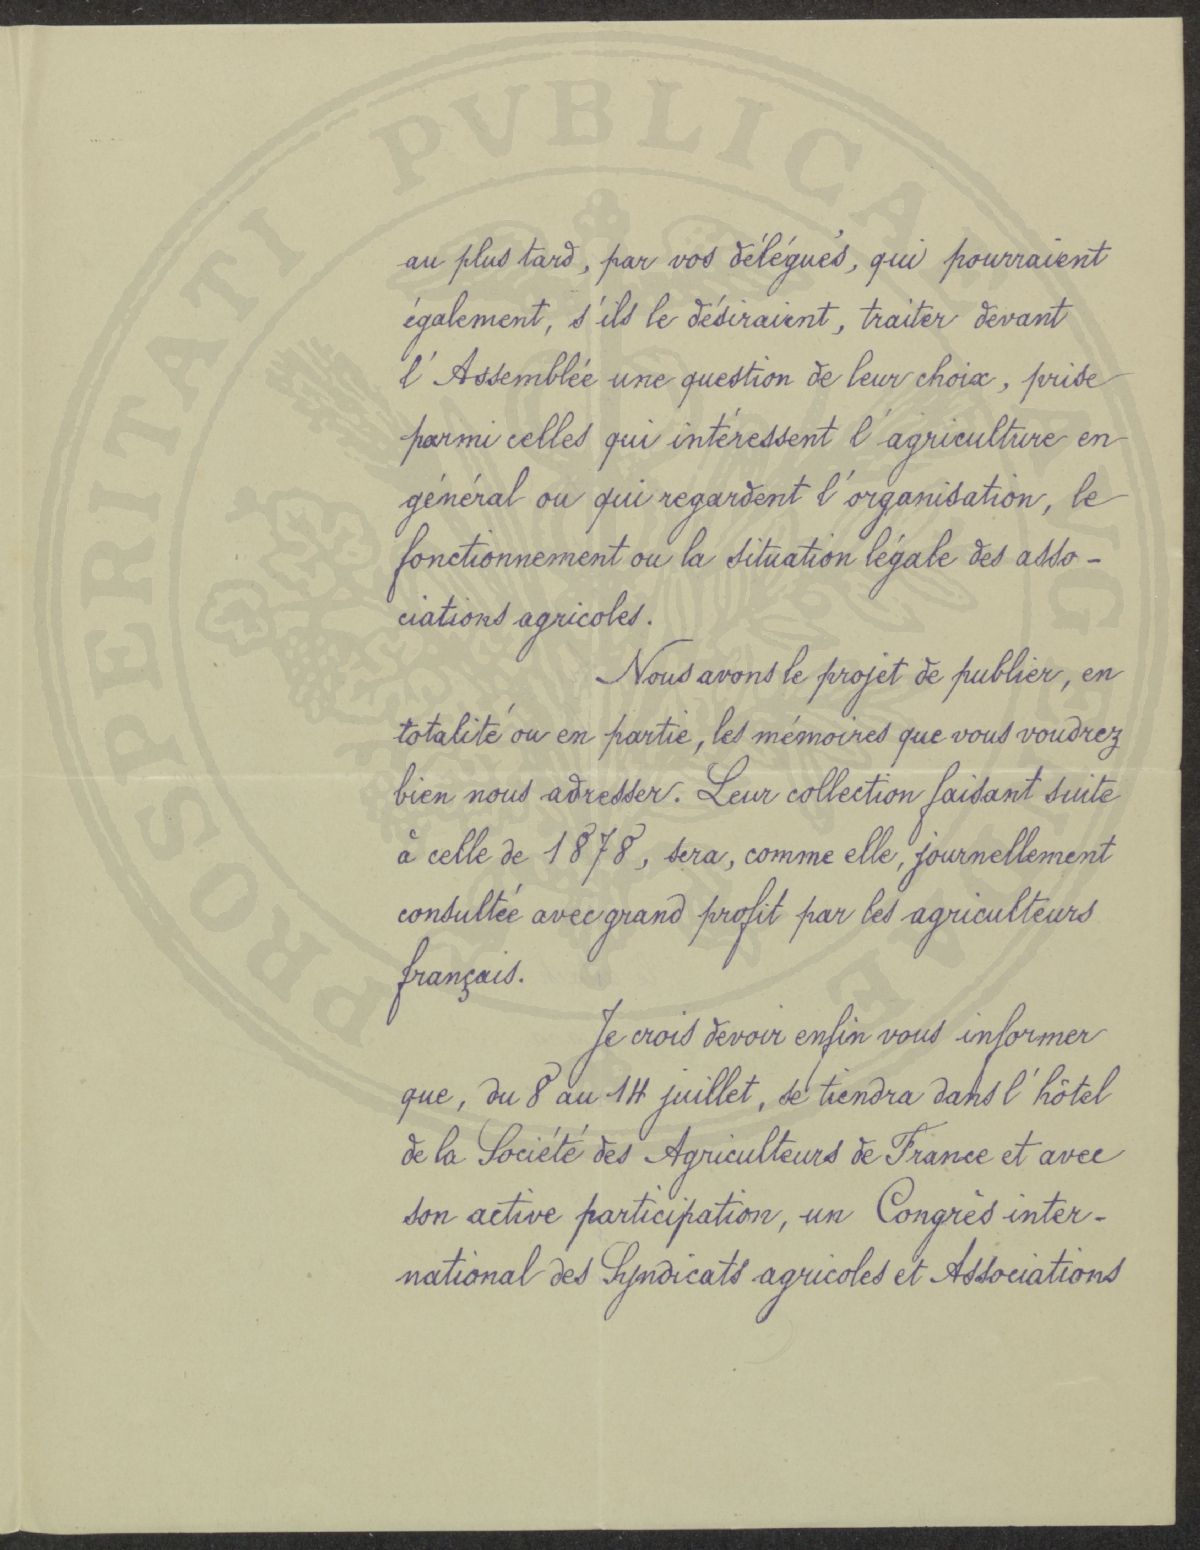 PROSPERITATI PVBLICAE
au plus tard, par vos délégués, qui pourraient
également, s'ils le désiraient, traiter devant
l'Assemblée une question de leur choix, prise
parmi celles qui intéressent l'agriculture en
général ou qui regardent l'organisation, le
fonctionnement ou la situation légale des asso-
ciations agricoles.
Nous avons le projet de publier, en
totalité ou en partie, les mémoires que vous voudrez
bien nous adresser. Leur collection faisant suite
à celle de 1878, sera, comme elle, journellement
consultée avec grand profit par les agriculteurs
français.
Je crois devoir enfin vous informer
que, du 8 au 14 juillet, se tiendra dans l'hôtel
de la Société des Agriculteurs de France et avec
son active participation, un Congrès inter-
national des Syndicats agricoles et Associations